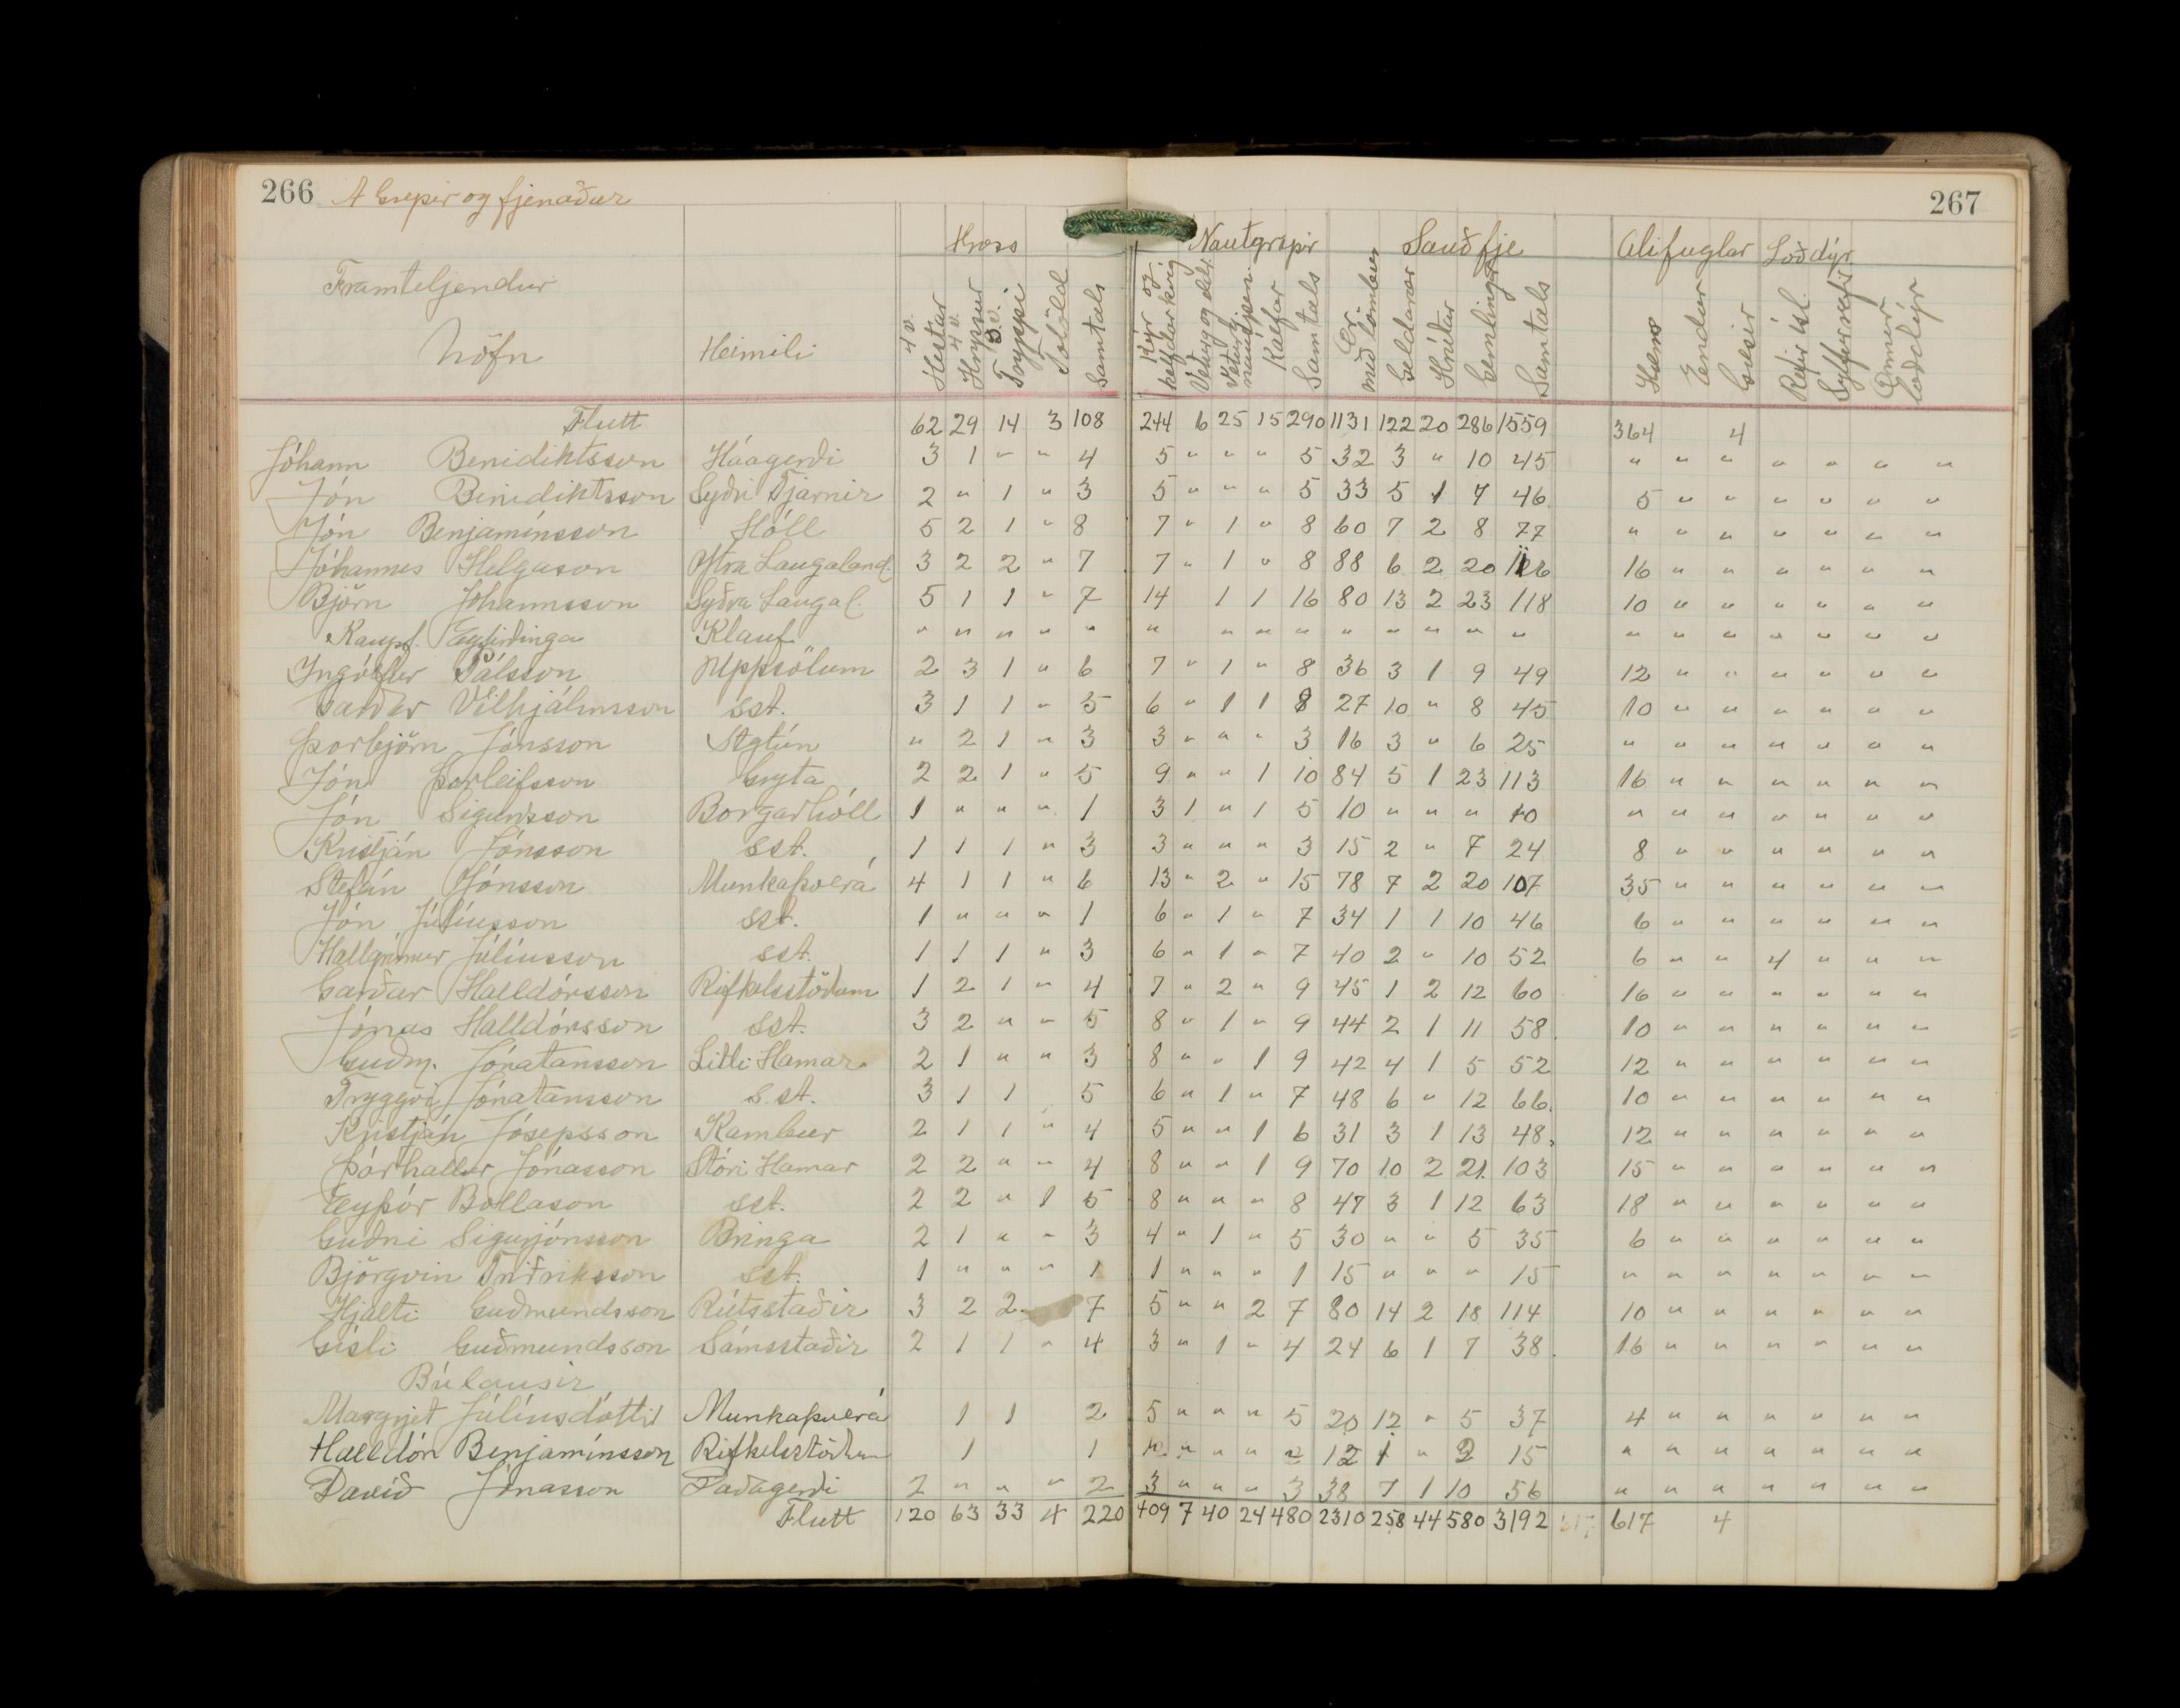 266 A Gripir og fjenaður 267
Hross Nautgripir Sauðfje Alifuglar Loðdýr
Framteljendur
Nöfn Heimili Hestar 4 v. Hryssur 4 v. Tryppi Folöld Samtals Kýr og kelfdar kvíg Kálfar Samtals Ær með lömbum Geldar ær Hrútar Gemlingar Samtals Hæns Endur Gæsir Refir ísl. Silfurrefir Önnur loðdýr
Flutt 62 29 14 3 108 244 6 25 15 290 1131 122 20 286 1559 364 4
Jóhann Benidiktsson Háagerði 3 1 " " 4 5 " " " 5 32 3 " 10 45 " " " " " " "
Jón Benidiktsson Syðri Tjarnir 2 " 1 " 3 5 " " " 5 33 5 1 7 46 5 " " " " " "
Jón Benjamínsson Hóll 5 2 1 " 8 7 " 1 " 8 60 7 2 8 77 " " " " " " "
Jóhannes Helgason Ytra Laugaland 3 2 2 " 7 7 " 1 " 8 88 6 2 20 116 16 " " " " " "
Björn Jóhannsson Syðra Laugal. 5 1 1 " 7 14 1 1 16 80 13 2 23 118 10 " " " " " "
Kaupf. Eyfirðinga Klauf " " " " " " " " " " " " " " " " " " " " "
Ingólfur Pálsson Uppsölum 2 3 1 " 6 7 " 1 " 8 36 3 1 9 49 12 " " " " " "
Garðar Vilhjálmsson sst. 3 1 1 " 5 6 " 1 1 8 27 10 " 8 45 10 " " " " " "
Þorbjörn Jónsson Stgtún " 2 1 " 3 3 " " " 3 16 3 " 6 25 " " " " " " "
Jón Þorleifsson Grýta 2 2 1 " 5 9 " " 1 10 84 5 1 23 113 16 " " " " " "
Jón Sigurðsson Borgarhóll 1 " " " 1 3 1 " 1 5 10 " " " 10 " " " " " " "
Kristján Jónsson sst. 1 1 1 " 3 3 " " " 3 15 2 " 7 24 8 " " " " " "
Stefán Jónsson Munkaþverá 4 1 1 " 6 13 " 2 " 15 78 7 2 20 107 35 " " " " " "
Jón Júlíusson sst. 1 " " " 1 6 " 1 " 7 34 1 1 10 46 6 " " " " " "
Hallgrímur Júlíusson sst. 1 1 1 " 3 6 " 1 " 7 40 2 " 10 52 6 " " 4 " " "
Garðar Halldórsson Rifkelsstöðum 1 2 1 " 4 7 " 2 " 9 45 1 2 12 60 16 " " " " " "
Jónas Halldórsson sst. 3 2 " " 5 8 " 1 " 9 44 2 1 11 58. 10 " " " " " "
Guðm. Jónatansson Litli Hamar 2 1 " " 3 8 " " 1 9 42 4 1 5 52 12 " " " " " "
Tryggvi Jónatansson s.st. 3 1 1 5 6 " 1 " 7 48 6 " 12 66. 10 " " " " " "
Kristján Jósepsson Kambur 2 1 1 " 4 5 " " 1 6 31 3 1 13 48. 12 " " " " " "
Þórhallur Jónasson Stóri Hamar 2 2 " " 4 8 " " 1 9 70 10 2 21 103 15 " " " " " "
Eyþór Bollason sst. 2 2 " 1 5 8 " " " 8 47 3 1 12 63 18 " " " " " "
Guðni Sigurjónsson Bringa 2 1 " " 3 4 " 1 " 5 30 " " 5 35 6 " " " " " "
Björgvin Friðriksson sst. 1 " " " 1 1 " " " 1 15 " " " 15 " " " " " " "
Hjalti Guðmundsson Rútsstaðir 3 2 2 7 5 " " 2 7 80 14 2 18 114 10 " " " " " "
Gísli Guðmundsson Sámsstaðir 2 1 1 " 4 3 " 1 " 4 24 6 1 7 38. 16 " " " " " "
Búlausir
Margrjet Júlíusdóttir Munkaþverá 1 1 2 5 " " " 5 20 12 " 5 37 4 " " " " " "
Halldór Benjamínsson Rifkelsstöðum 1 1 " " " 12 1 " 2 15 " " " " " " "
Davíð Jónasson Taðagerði 2 " " " 2 3 " " " 3 38 7 1 10 56 " " " " " " "
Flutt 120 63 33 4 220 409 7 40 24 480 2310 258 44 580 3192 617 617 4